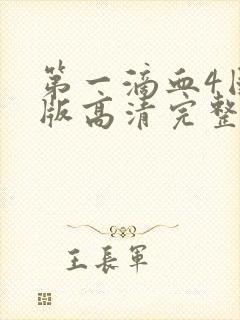 第一滴血4
版高清完整
王長軍